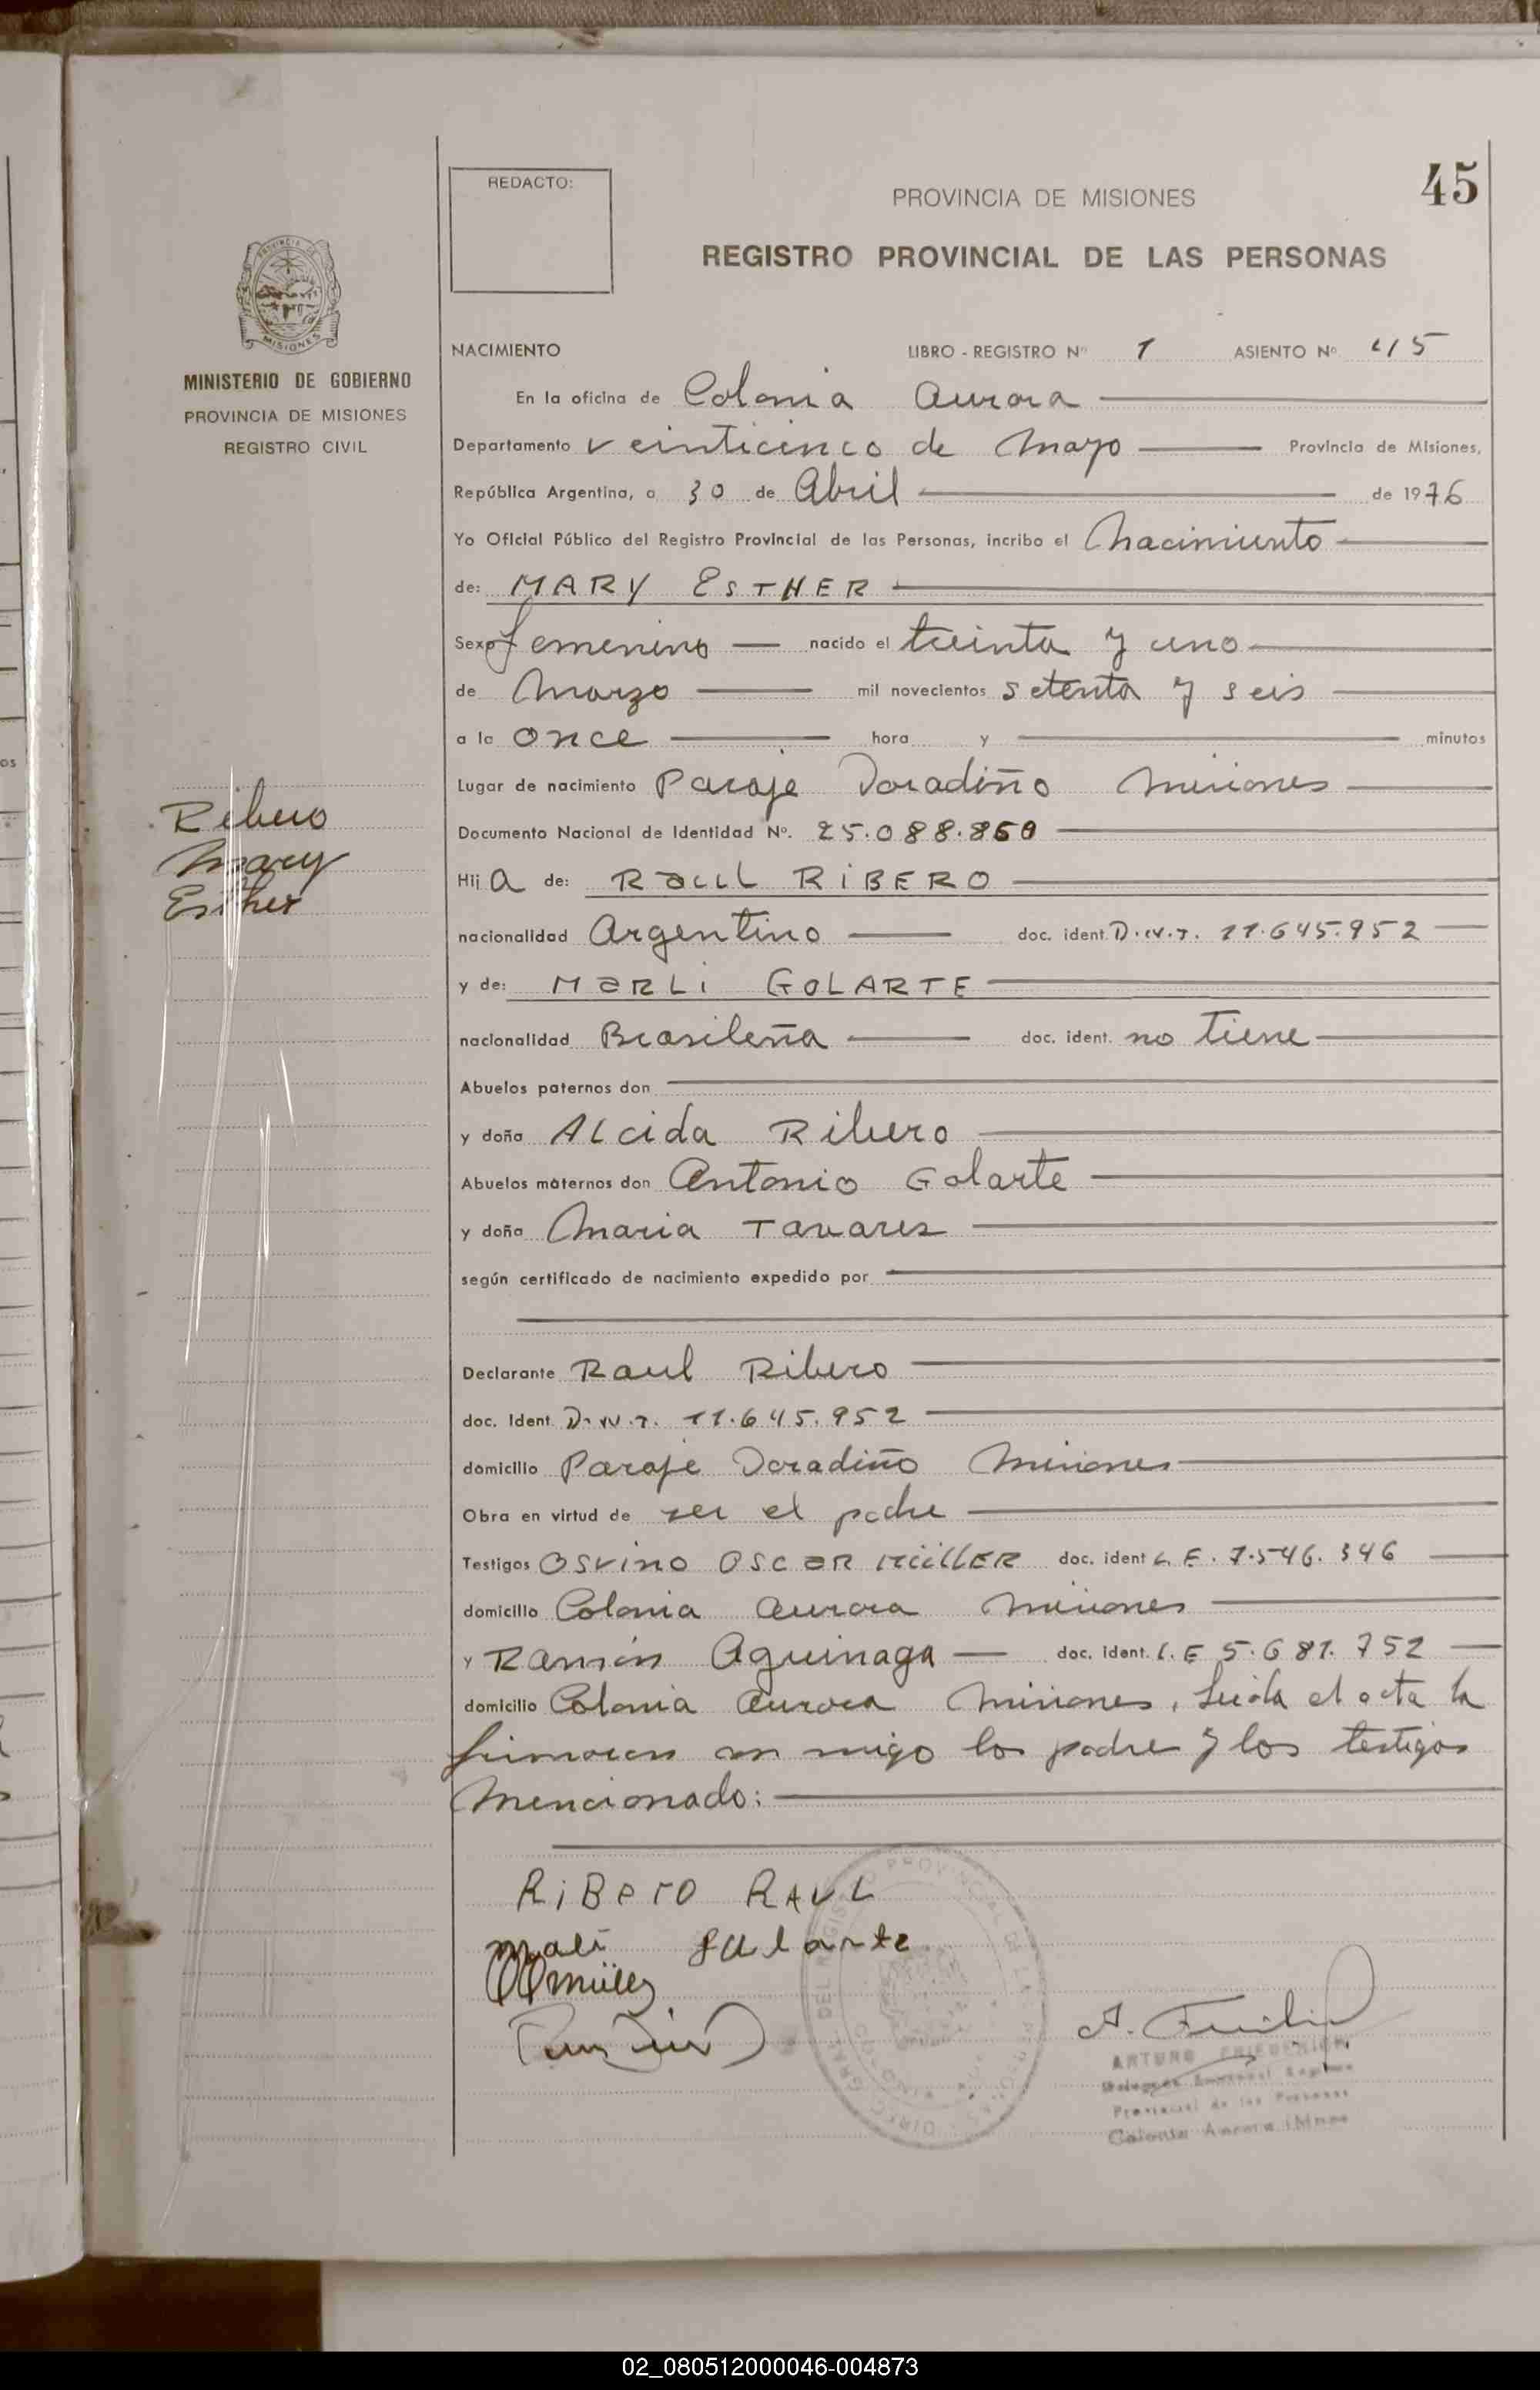 45
REDACTO:
PROVINCIA DE MISIONES
REGISTRO PROVINCIAL DE LAS PERSONAS
MISIONES
MINISTERIO DE GOBIERNO
PROVINCIA DE MISIONES
REGISTRO CIVIL
NACIMIENTO LIBRO - REGISTRO Nº 1 ASIENTO Nº 45
En la oficina de Colonia Aurora
Departamento Veinticinco de Mayo Provincia de Misiones,
República Argentina, a 30 de Abril de 1976
Yo Oficial Público del Registro Provincial de las Personas, incribo el Nacimiento
de: MARY ESTHER
Sexo femenino nacido el treinta y uno
de Marzo mil novecientos setenta y seis
a la once hora y minutos
Lugar de nacimiento Paraje Doradiño Misiones
Documento Nacional de Identidad Nº. 25.088.860
Hij a de: Raul RiBERO
nacionalidad Argentino doc. ident. D.N.I. 11.645.952
y de: MaRLi GOLARTE
nacionalidad Brasileña doc. ident. no tiene
Abuelos paternos don
y doña Alcida Ribero
Abuelos maternos don Antonio Golarte
y doña Maria Tavares
según certificado de nacimiento expedido por
Declarante Raul Ribero
doc. Ident. D.N.I. 11.645.952
domicilio Paraje Doradiño Misiones
Obra en virtud de ser el padre
Testigos Osvino Oscar MüllER doc. ident L.E. 7.546.346
domicilio Colonia Aurora Misiones
y Ramón Aguinaga doc. ident. L.E 5.681.752
domicilio Colonia Aurora Misiones, Leida el acta la
firmaran con migo los padre y los testigos
Mencionado:
Ribero
Mary
Esther
RiBerO RAUL
mali gularte
OOmüller
A.
ARTURO FRIEDERICH
Provincial de las Personas
Colonia Aurora (Mnes
02_080512000046-004873